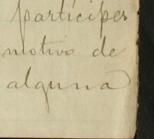 participer
motivo de
alguna